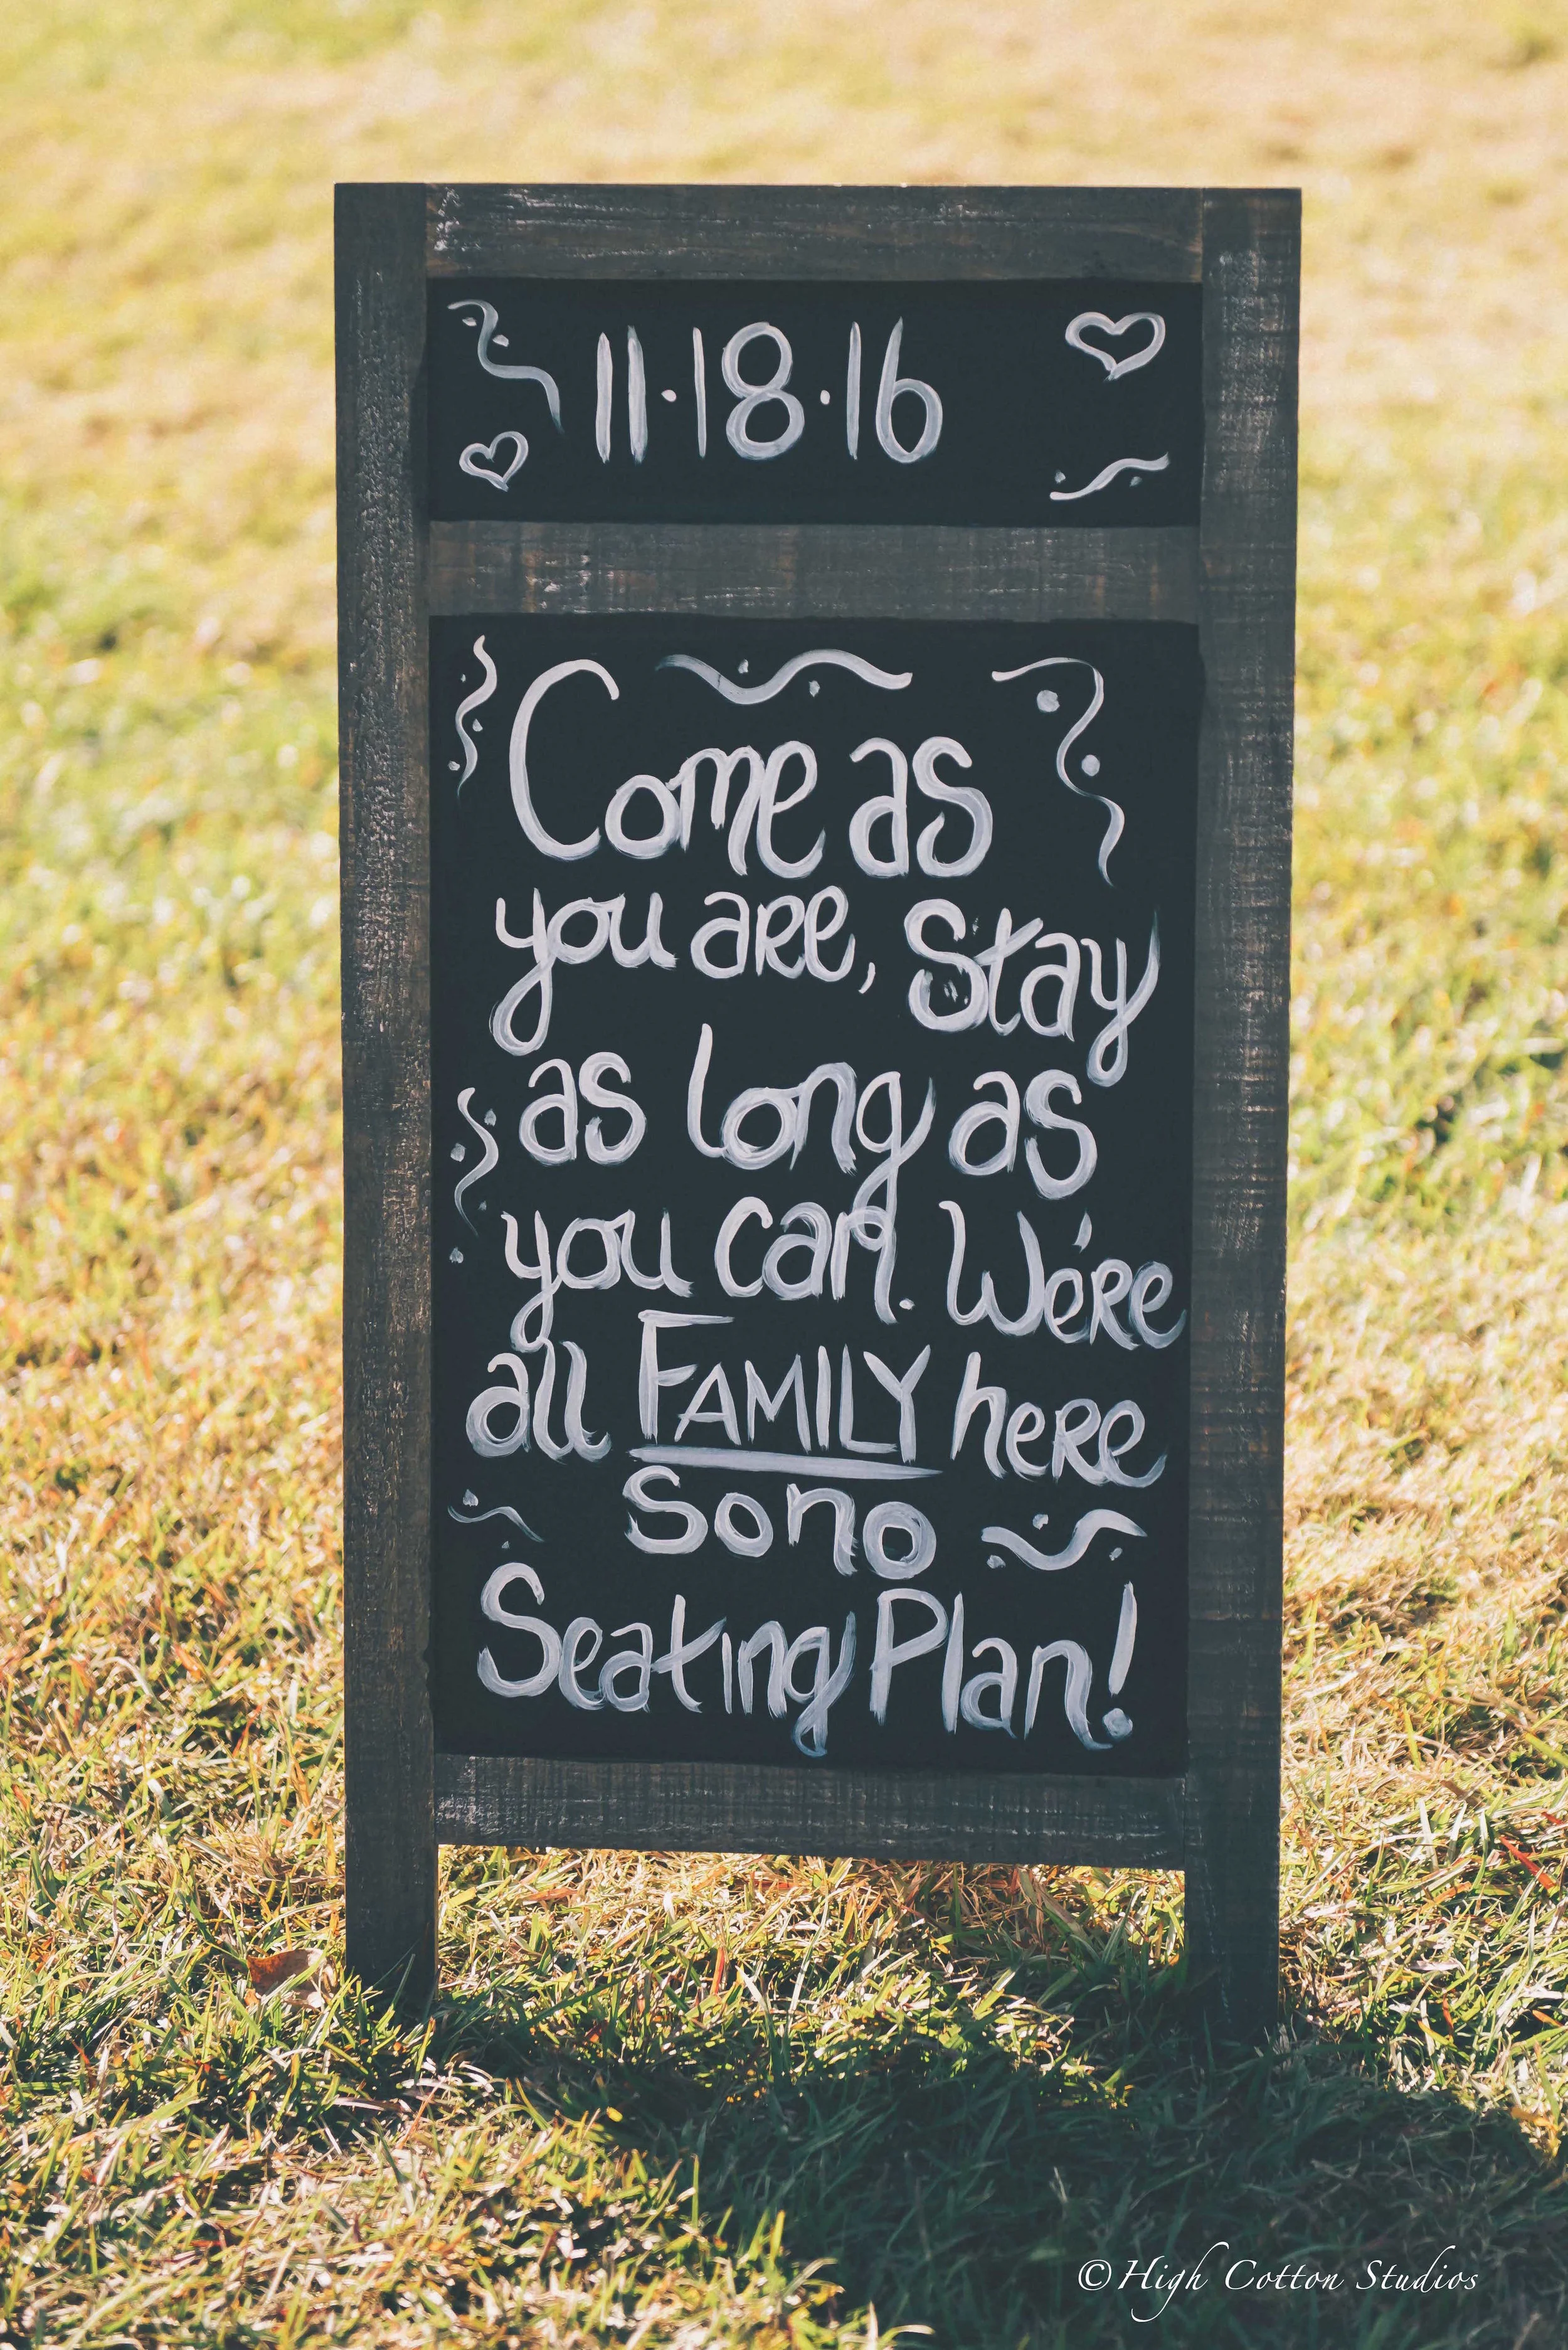 11·18·16
Come as
you are, Stay
as long as
you can. We're
all FAMILY here
so no
Seating Plan!
©High Cotton Studios